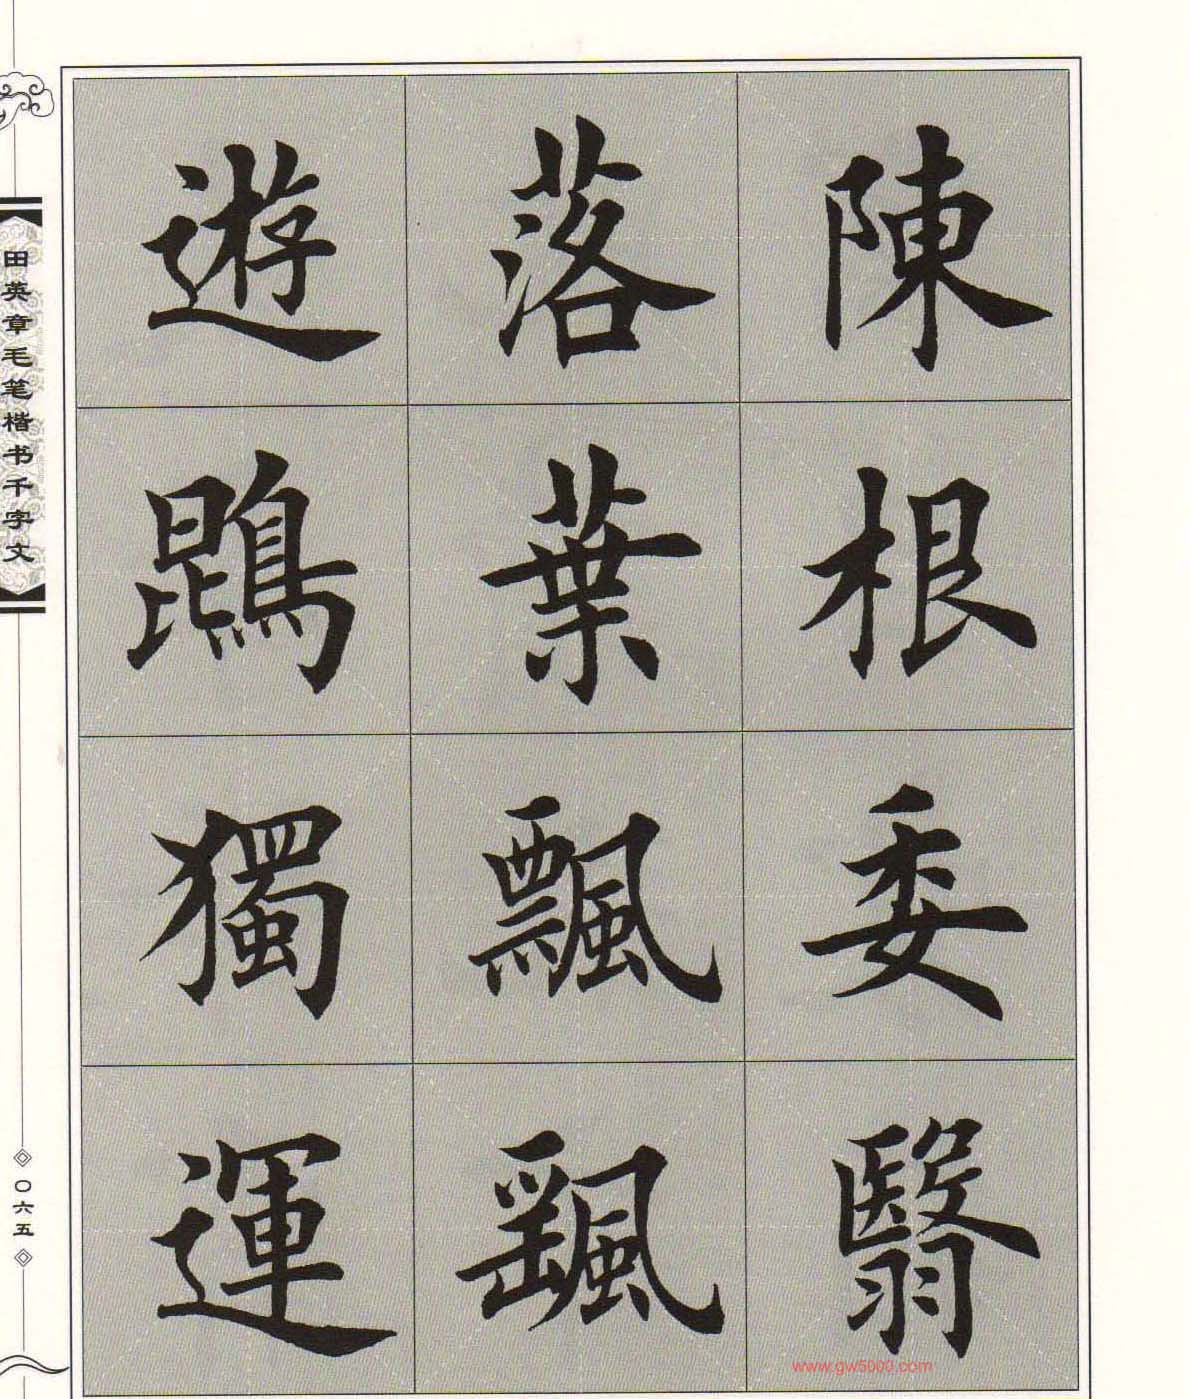 陳根委翳
落葉飄颻
遊鵾獨運
田英章毛笔楷书千字文
〇六五
www.gw5000.com